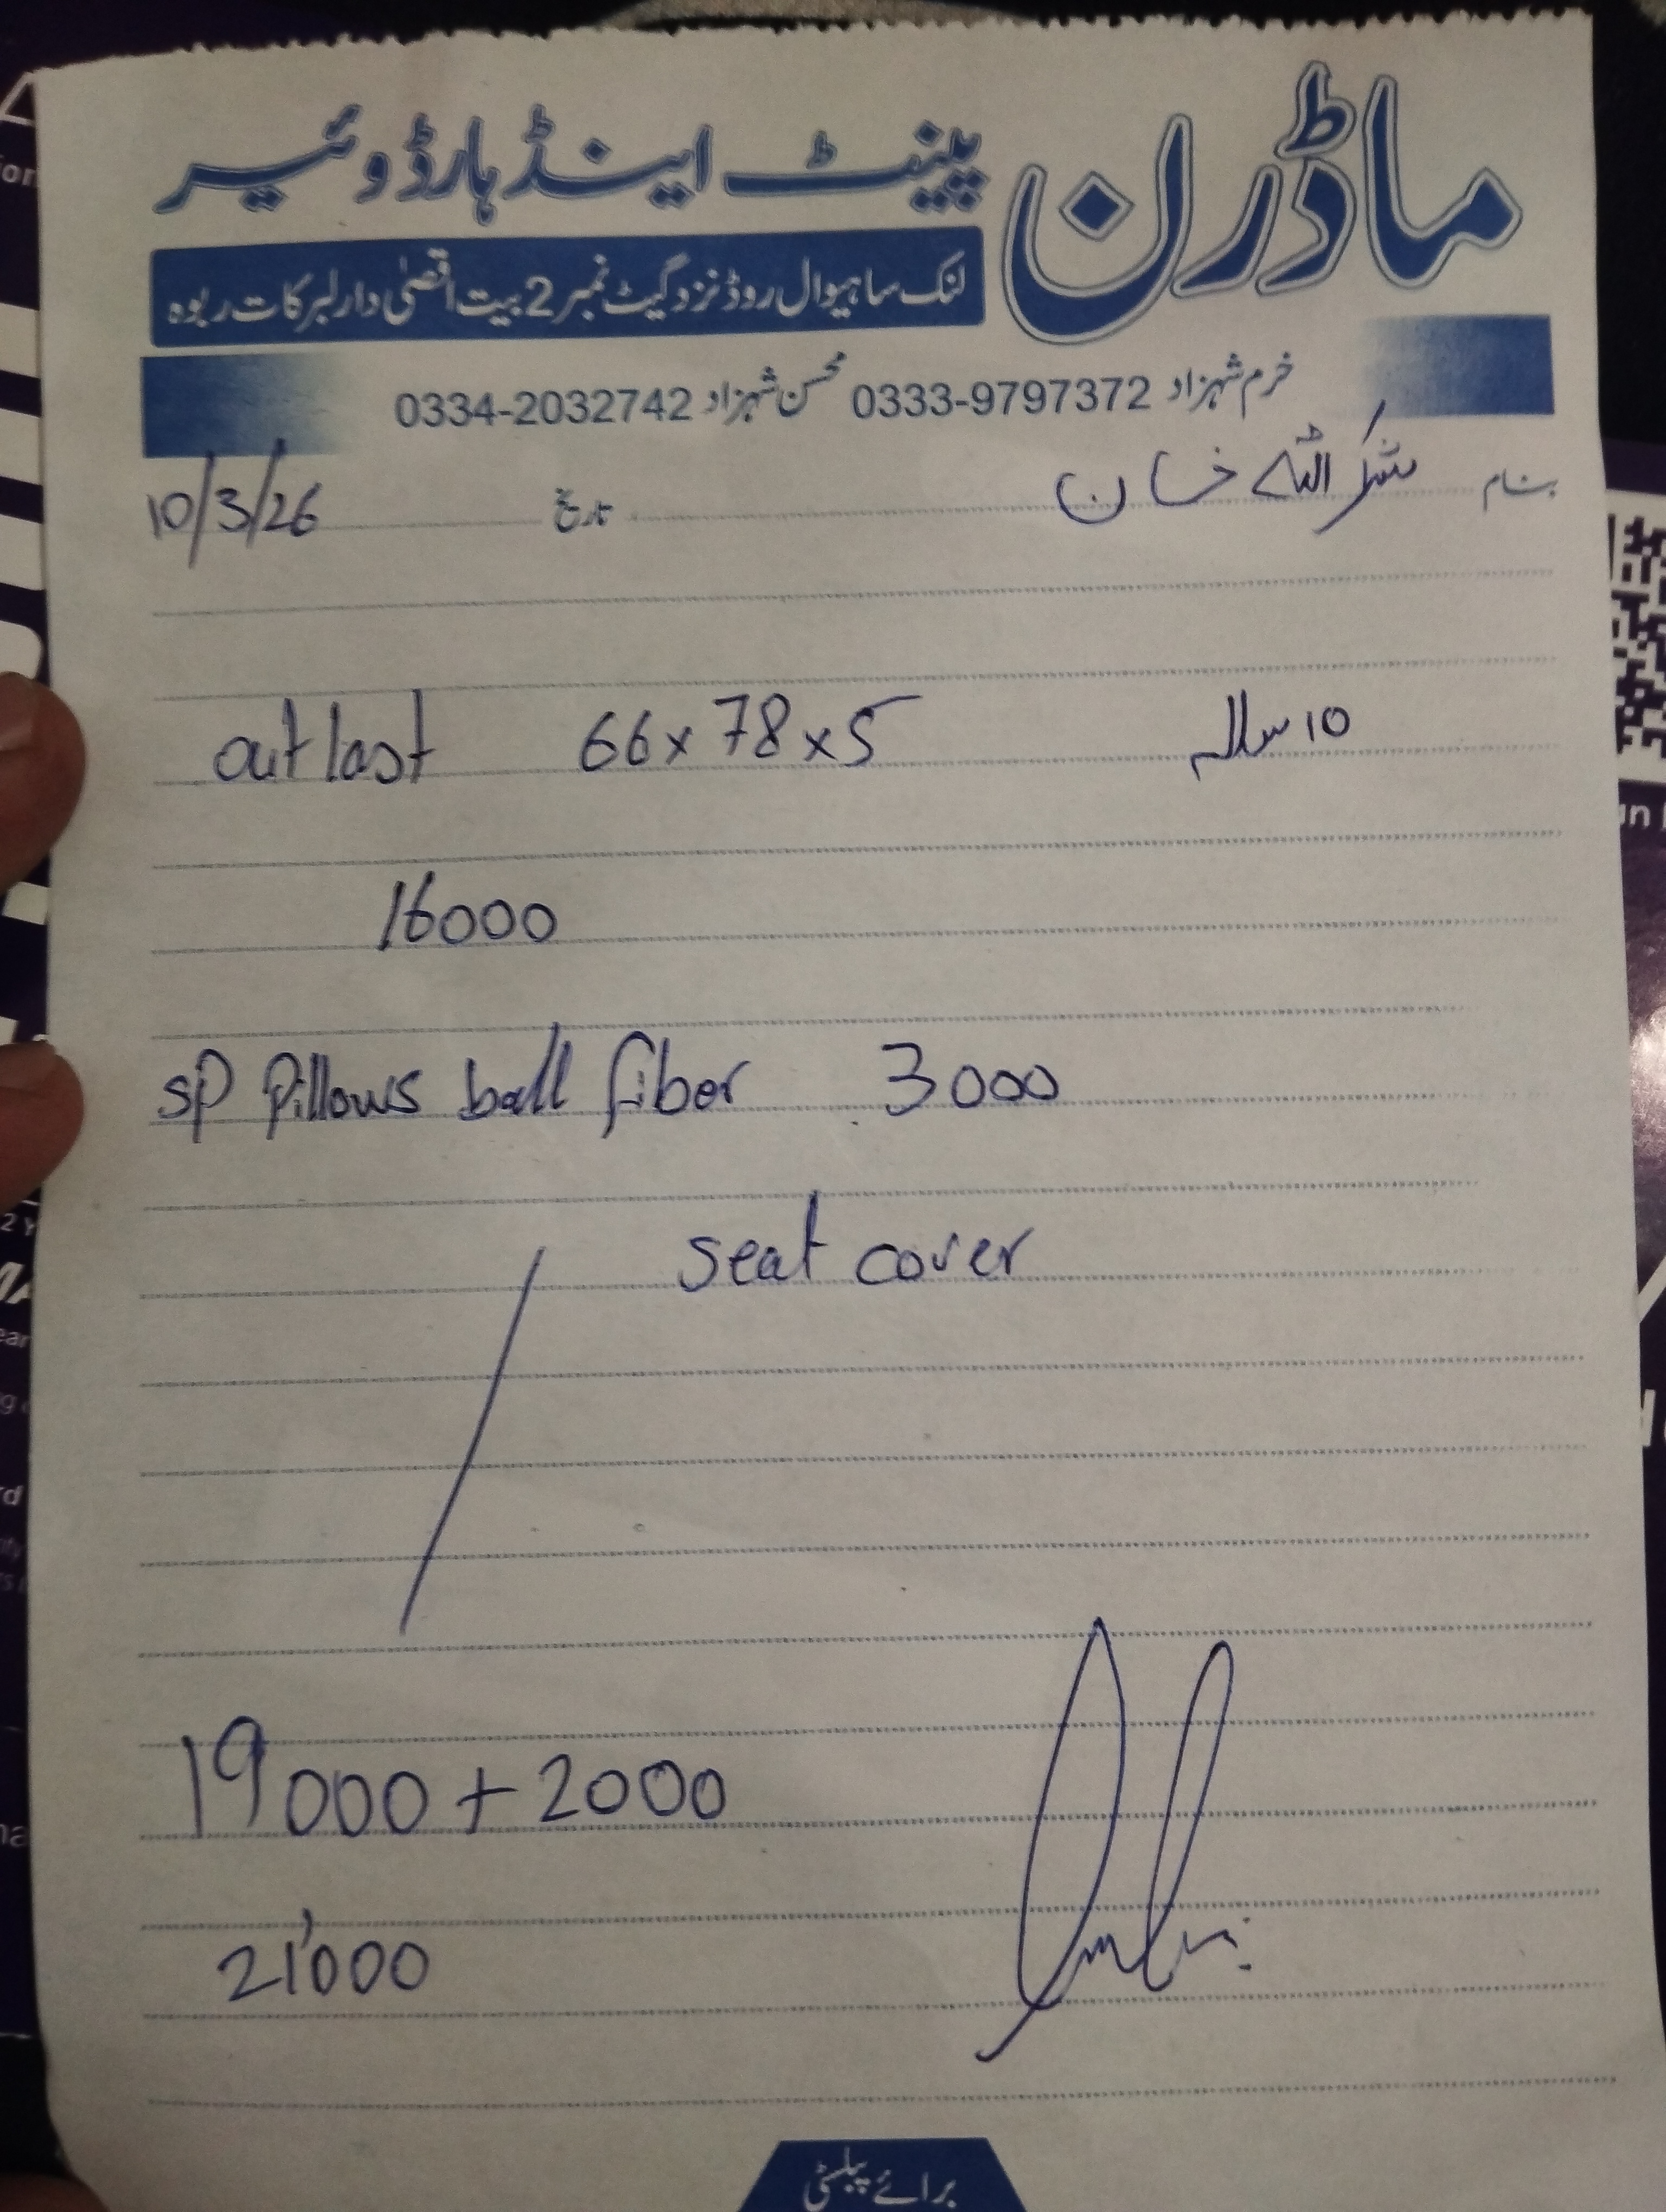 ماڈرن پینٹ اینڈ ہارڈوئیر
لنک ساہیوال روڈ نزد گیٹ نمبر 2 بیت اقصیٰ دارلبرکات ربوہ
خرم شہزاد 0333-9797372 محسن شہزاد 0334-2032742
بنام شکر اللہ خان تاریخ 10/3/26
out last 66 x 78 x 5 10 سالہ
16000
SP Pillows ball fiber 3000
seat cover
19000 + 2000
21,000
برائے پبلسٹی